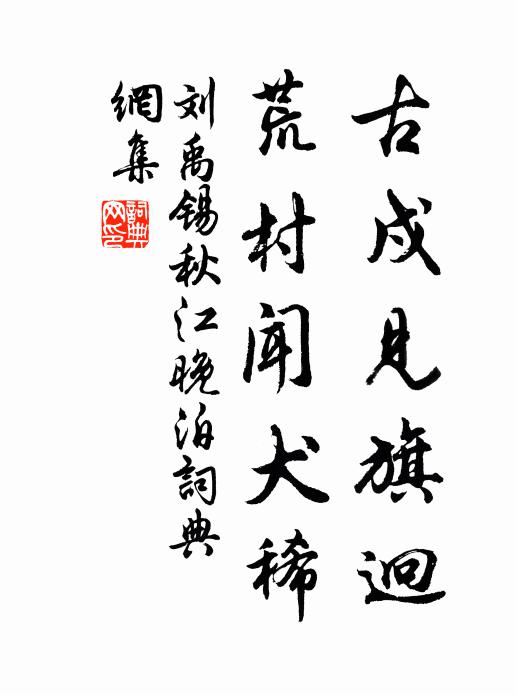 古戍見旗迥
荒村闻犬稀
刘禹锡秋江晚泊詞典
網集
詞典
网印